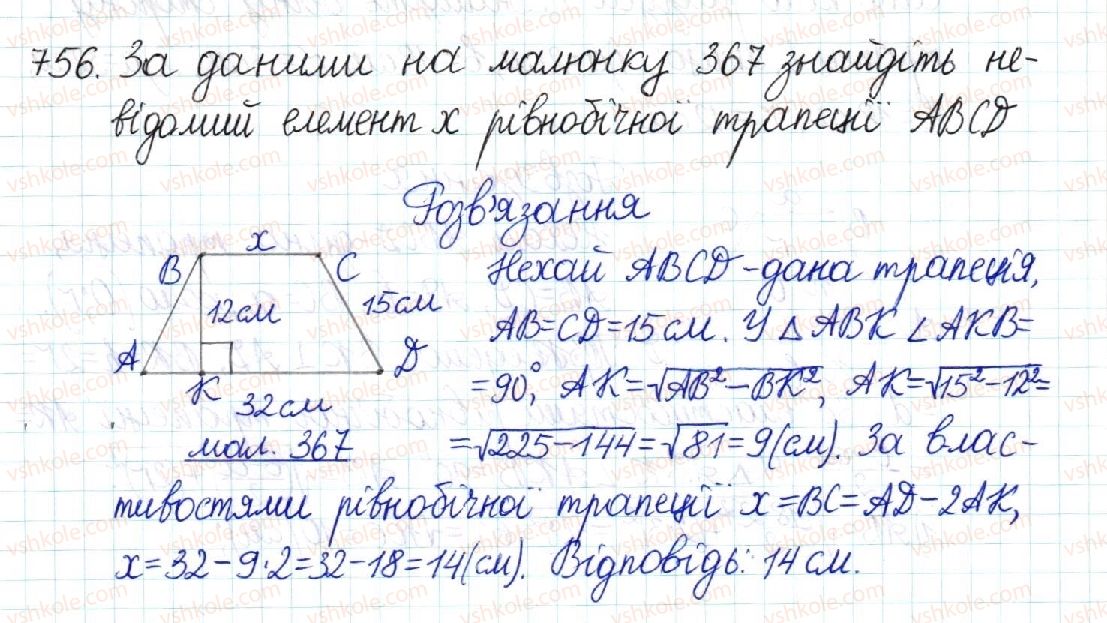 756. За даними на малюнку 367 знайдіть не-
відомий елемент x рівнобічної трапеції ABCD
Розв'язання
x
B
C
12см
15см
A
D
K
32см
мал. 367
Нехай ABCD - дана трапеція,
AB=CD=15см. У △ABK ∠AKB=
=90°, AK=√AB²-BK², AK=√15²-12²=
=√225-144=√81=9(см). За влас-
тивостями рівнобічної трапеції x=BC=AD-2AK,
x=32-9·2=32-18=14(см). Відповідь: 14см.